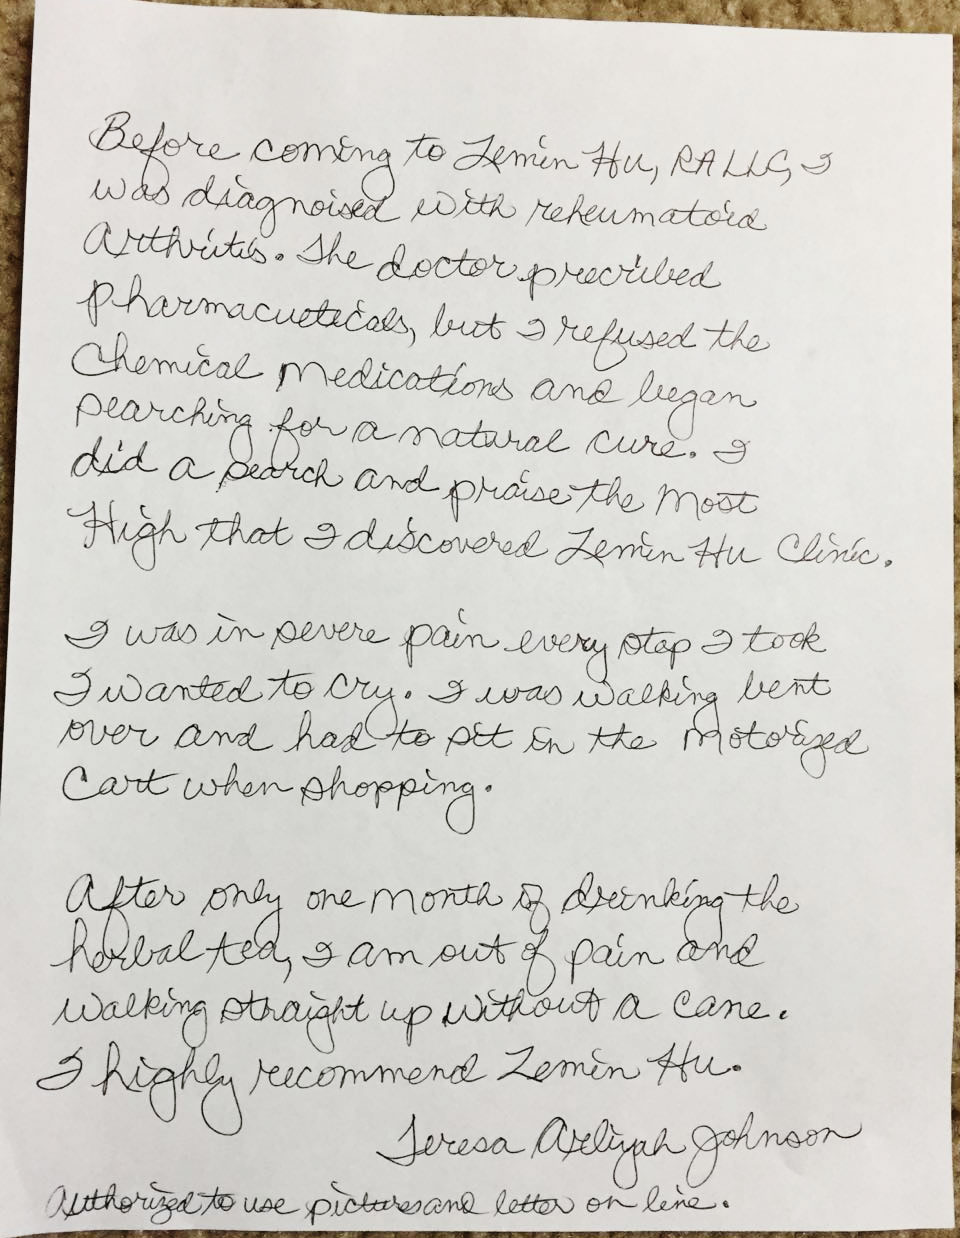 Before coming to Zemin Hu, RA LLC, I
was diagnoised with reheumatoid
Arthritis. The doctor precribed
pharmacueticals, but I refused the
Chemical medications and began
searching for a natural cure. I
did a search and praise the Most
High that I discovered Zemin Hu Clinic.
I was in severe pain every step I took
I wanted to cry. I was walking bent
over and had to sit in the motorized
Cart when shopping.
After only one month of drinking the
herbal tea, I am out of pain and
walking straight up without a cane.
I highly recommend Zemin Hu.
Teresa Johnson
Authorized to use pictures and letter on line.